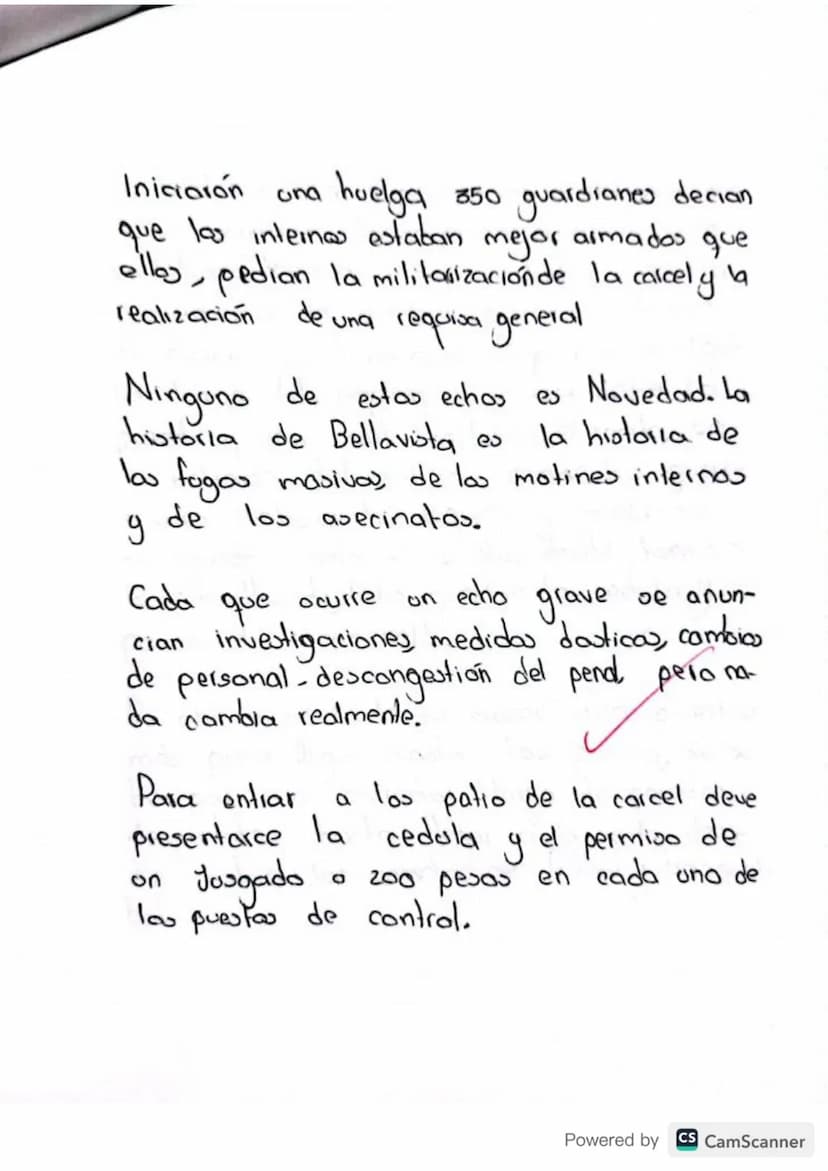 Iniciarón una huelga 350 guardianes decian
que los internos estaban mejor armados que
ellos, pedian la militarizaciónde la carcel y la
realización de una requisa general
Ninguno de estos echos es Novedad. La
historia de Bellavista es la historia de
las fugas masivas, de los motines internos
y de los asecinatos.
Cada que ocurre un echo grave se anun-
cian investigaciones, medidas dasticas, cambios
de personal - descongestión del penal, pero na-
da cambia realmente.
Para entrar a los patio de la carcel deve
presentarce la cedula y el permiso de
un Jusgado o 200 pesos en cada uno de
los puestos de control.
Powered by CS CamScanner